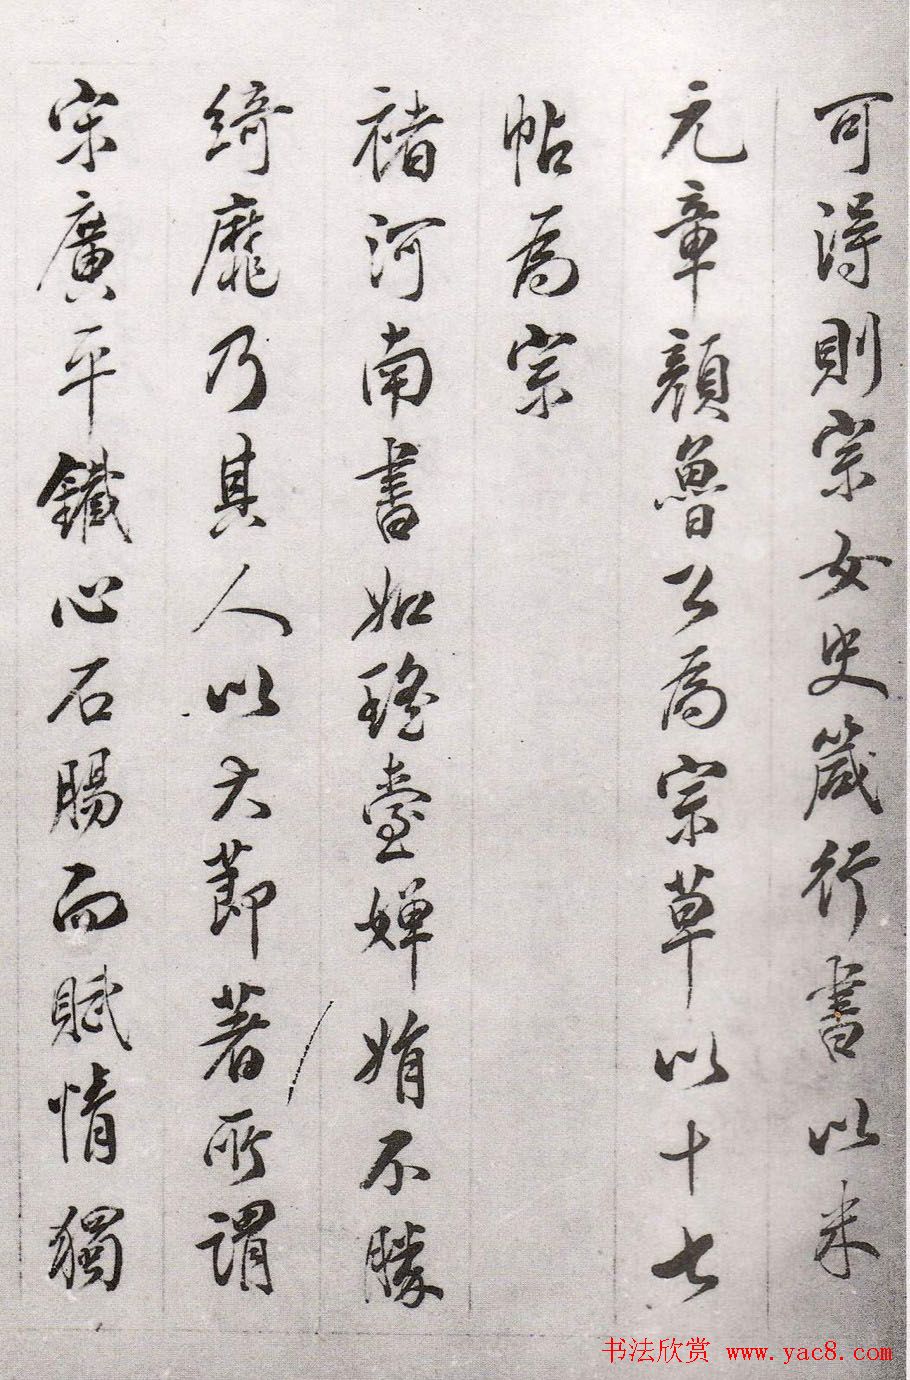 可得則宗女史箴行書以米
元章顏魯公為宗草以十七
帖為宗
褚河南書如瑤臺嬋娟不勝
綺靡乃其人以大節著所謂
宋廣平鐵心石腸而賦情獨
书法欣赏 www.yac8.com